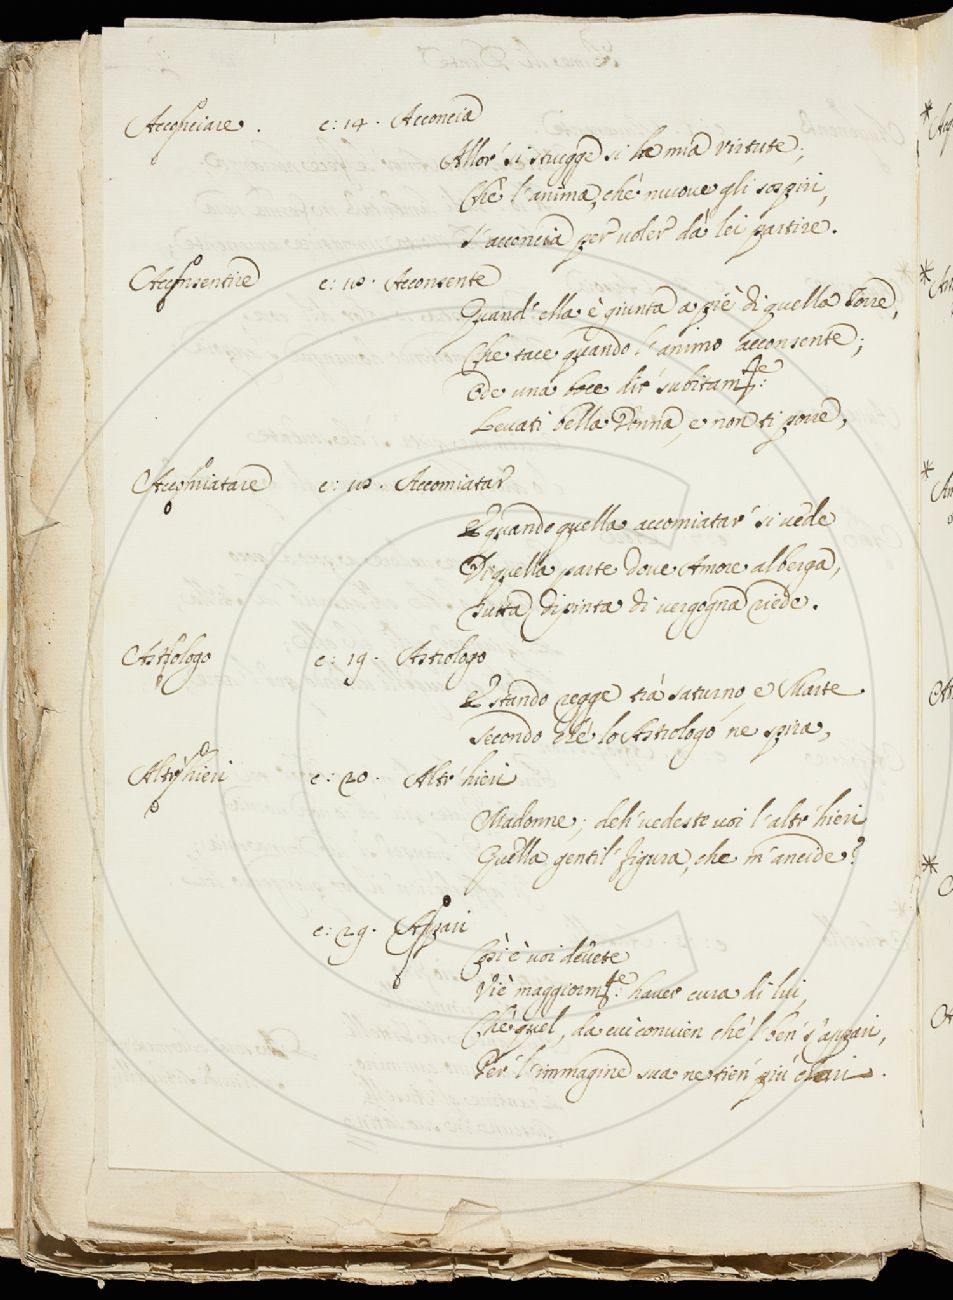 Acconciare. c: 14. Acconcia
Allor' si strugge si la mia virtute;
Che l'anima, che muove gli sospiri,
S'acconcia per voler da lei partire.
Acconsentire c: 18. Acconsente
Quand'ella è giunta a piè di quella Torre,
Che tace quando l'animo acconsente;
Ode una boce dir' subitam.te:
Levati bella Donna, e non ti porre,
Accomiatare c: 18. Accomiatar
E quando quella accomiatar' si vede
Di quella parte dove Amore alberga,
Tutta dipinta di vergogna riede.
Astrologo c: 19. Astrologo
E stando regge trà Saturno, e Marte
Secondo che lo Astrologo ne spira,
Altr'hieri c: 20. Altr'hieri
Madonne; deh' vedeste voi l'altr'hieri
Quella gentil' figura, che m'ancide?
c: 29. Appari
Così è voi devete
Viè maggiorm.te: haver cura di lui,
Che quel, da cui convien che'l ben' s'appari,
Per l'immagine sua ne tien' più chari.